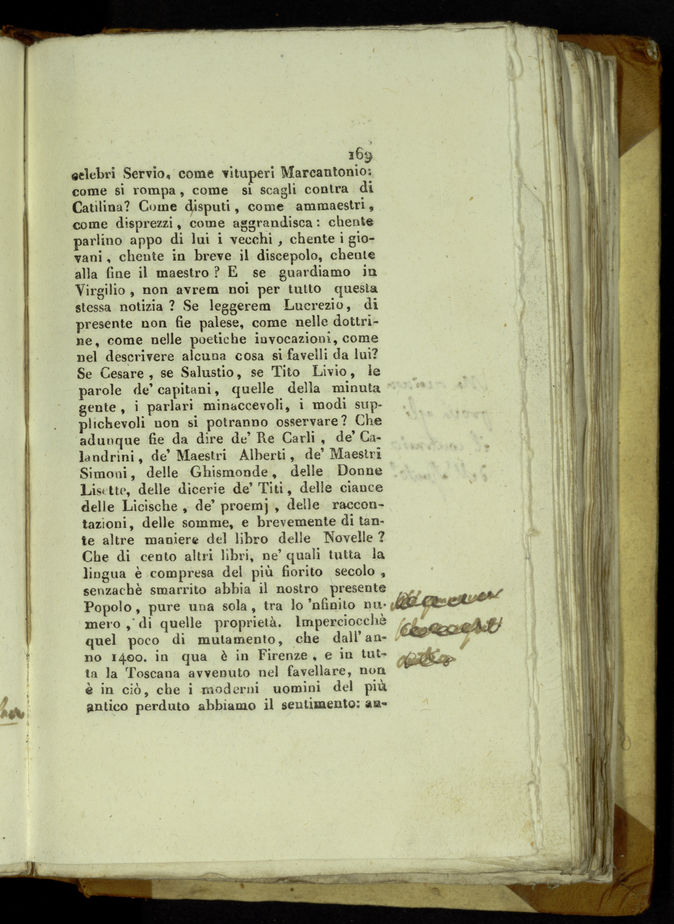 169
celebri Servio, come vituperi Marcantonio:
come si rompa, come si scagli contra di
Catilina? Come disputi, come ammaestri,
come disprezzi, come aggrandisca: chente
parlino appo di lui i vecchi, chente i gio-
vani, chente in breve il discepolo, chente
alla fine il maestro? E se guardiamo in
Virgilio, non avrem noi per tutto questa
stessa notizia? Se leggerem Lucrezio, di
presente non fie palese, come nelle dottri-
ne, come nelle poetiche invocazioni, come
nel descrivere alcuna cosa si favelli da lui?
Se Cesare, se Salustio, se Tito Livio, le
parole de' capitani, quelle della minuta
gente, i parlari minaccevoli, i modi sup-
plichevoli non si potranno osservare? Che
adunque fie da dire de' Re Carli, de' Ca-
landrini, de' Maestri Alberti, de' Maestri
Simoni, delle Ghismonde, delle Donne
Lisette, delle dicerie de' Titi, delle ciance
delle Licische, de' proemj, delle raccon-
tazioni, delle somme, e brevemente di tan-
te altre maniere del libro delle Novelle?
Che di cento altri libri, ne' quali tutta la
lingua è compresa del più fiorito secolo,
senzachè smarrito abbia il nostro presente
Popolo, pure una sola, tra lo 'nfinito nu-
mero, di quelle proprietà. Imperciocchè
quel poco di mutamento, che dall' an-
no 1400. in qua è in Firenze, e in tut-
ta la Toscana avvenuto nel favellare, non
è in ciò, che i moderni uomini del più
antico perduto abbiamo il sentimento: an-